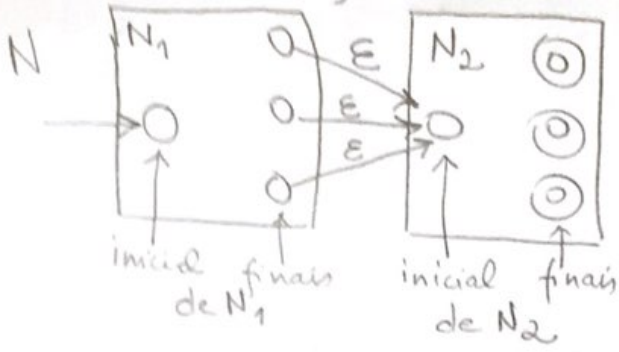 N
N₁
ε
ε
ε
N₂
inicial
finais
de N₁
inicial
finais
de N₂